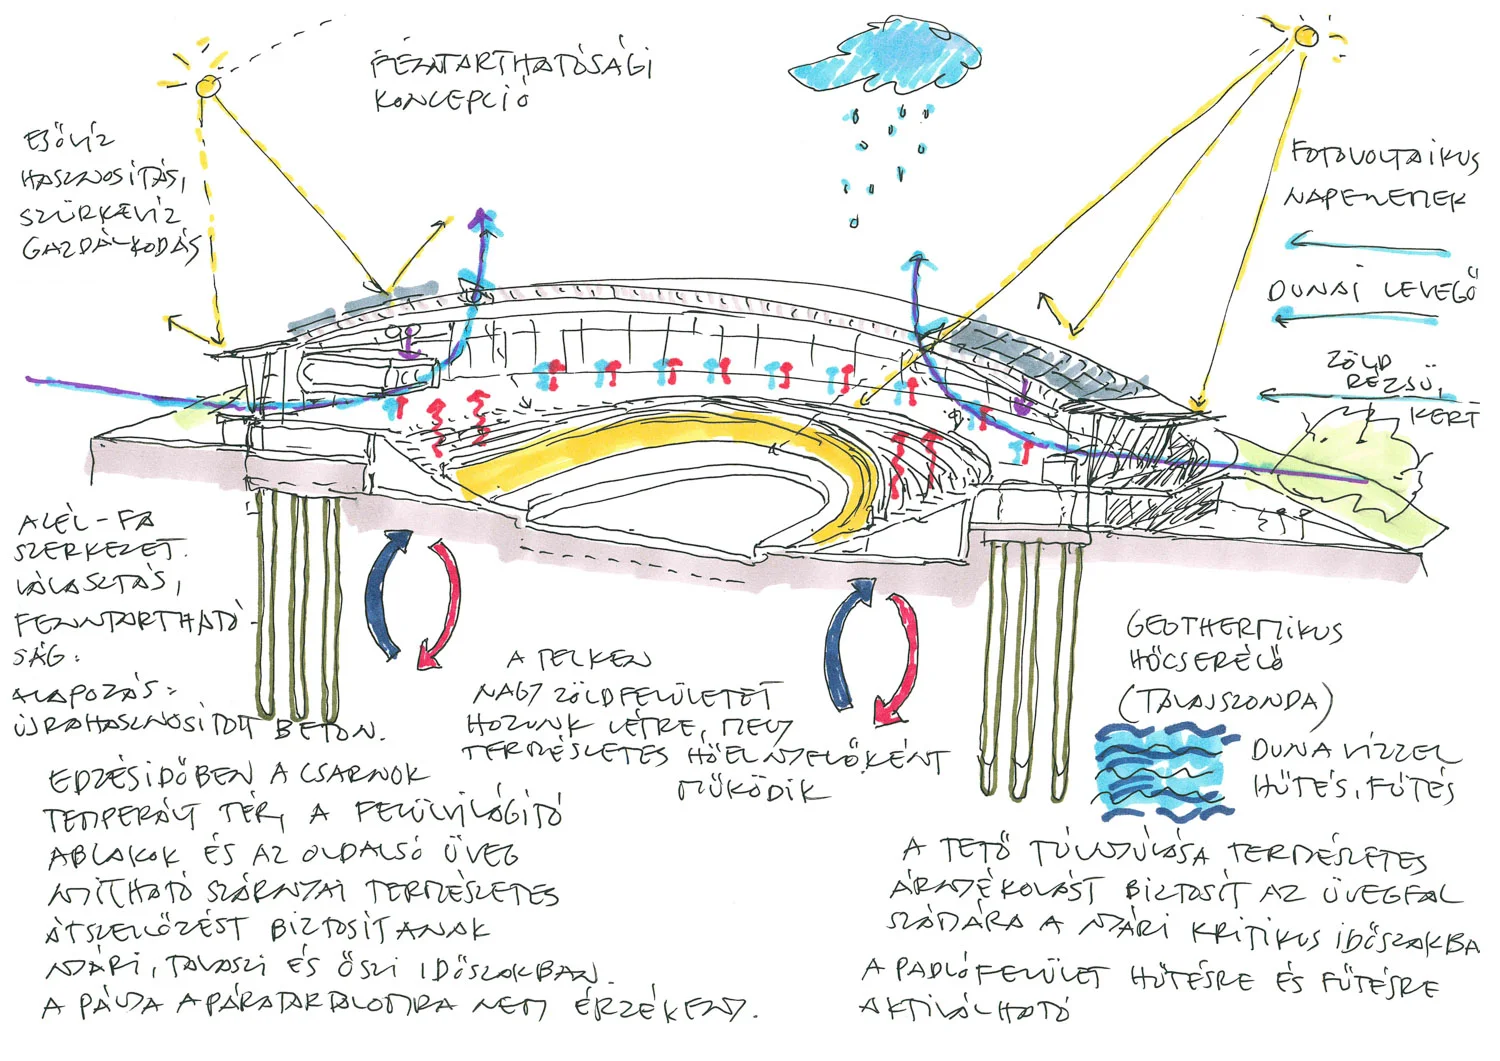 FENNTARTHATÓSÁGI
KONCEPCIÓ
ESŐVÍZ
HASZNOSÍTÁS,
SZÜRKEVÍZ
GAZDÁLKODÁS
FOTOVOLTAIKUS
NAPELEMEK
DUNAI LEVEGŐ
ZÖLD
REZSŰ,
KERT
ACÉL-FA
SZERKEZET.
VÁLASZTÁS,
FENNTARTHATÓ-
SÁG:
ALAPOZÁS:
ÚJRAHASZNOSÍTOTT BETON.
A TELKEN
NAGY ZÖLDFELÜLETET
HOZUNK LÉTRE, MELY
TERMÉSZETES HŐELNYELŐKÉNT
MŰKÖDIK
GEOTHERMIKUS
HŐCSERÉLŐ
(TALAJSZONDA)
DUNAVÍZZEL
HŰTÉS, FŰTÉS
EDZÉSIDŐBEN A CSARNOK
TEMPERÁLT TÉR, A FELÜLVILÁGÍTÓ
ABLAKOK ÉS AZ OLDALSÓ ÜVEG
NYITHATÓ SZÁRNYAI TERMÉSZETES
ÁTSZELLŐZÉST BIZTOSÍTANAK
NYÁRI, TAVASZI ÉS ŐSZI IDŐSZAKBAN.
A PÁLYA A PÁRATARTALOMRA NEM ÉRZÉKENY.
A TETŐ TÚLNYÚLÁSA TERMÉSZETES
ÁRNYÉKOLÁST BIZTOSÍT AZ ÜVEGFAL
SZÁMÁRA A NYÁRI KRITIKUS IDŐSZAKBA
A PADLÓFELÜLET HŰTÉSRE ÉS FŰTÉSRE
AKTIVÁLHATÓ